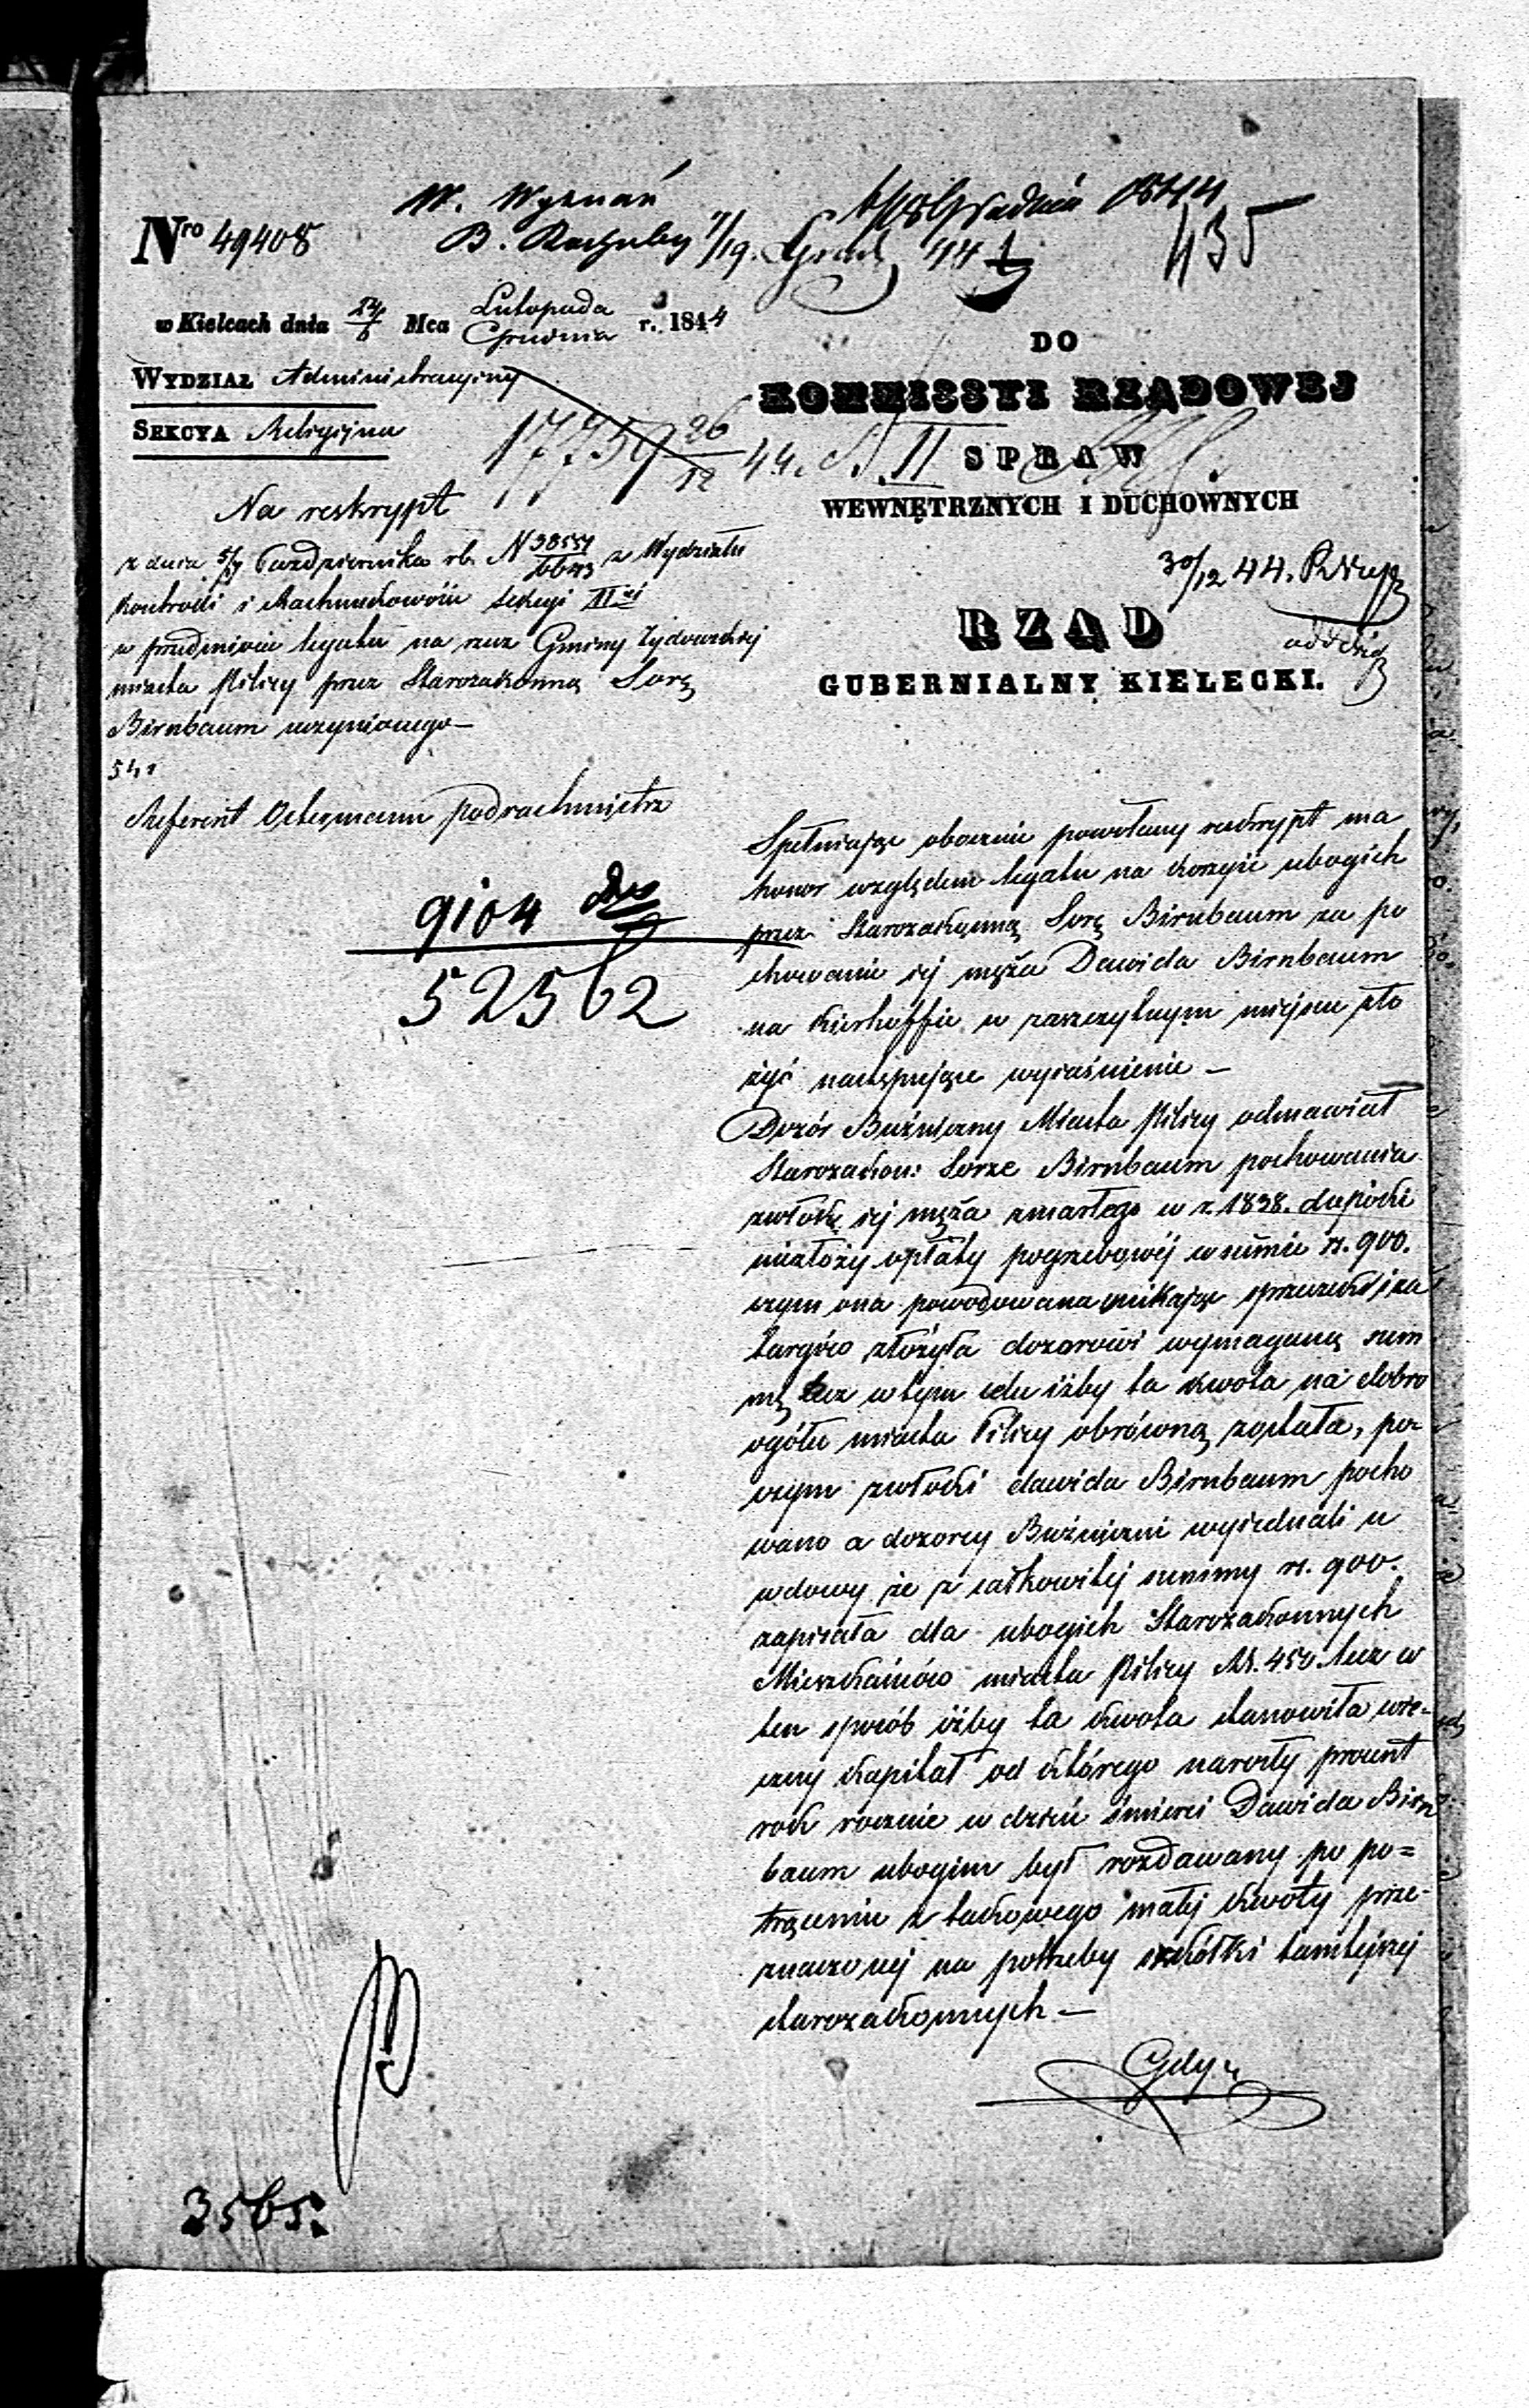 W. Wyznań
Nro 49408
435
w Kielcach dnia 24/6 Mca Listopada/Grudnia r. 1844
WYDZIAŁ Administracyjny
SEKCYA Religijna
17759 26/12 44. II
DO
KOMMISSYI RZĄDOWEJ
SPRAW
WEWNĘTRZNYCH I DUCHOWNYCH
30/12 44.
RZĄD
GUBERNIALNY KIELECKI.
Na reskrypt
z dnia 5/17 Października rb. N 38554/6643 z Wydziału
Kontroli i Rachunkowości Sekcyi II
w przedmiocie legatu na rzecz Gminy Żydowskiej
miasta Pilicy przez Starozakonną Sorę
Birnbaum uczynionego—
541
Referent podrachmistrz
9104
52562
Spełniając obocznie powołany reskrypt ma
honor względem legatu na korzyść ubogich
przez Starozakonną Sorę Birnbaum za po
chowanie jej męża Dawida Birnbaum
na Kirkoffie w zaszczytnym miejscu zło
żyć następujące wyjaśnienie —
Dozór Bużniczny Miasta Pilicy odmawiał
Starozakon: Sorze Birnbaum pochowania
zwłok jej męża zmarłego w r. 1838. dopóki
niezłoży opłaty pogrzebowéj w summie rs. 900.
czym ona powodowana unikając sprzeczek i za
targów złożyła dozorowi wymaganą sum
mę lecz w tym celu iżby ta kwota na dobro
ogółu miasta Pilicy obróconą została, po
czym zwłoki dawida Birnbaum pocho
wano a dozorcy Bużniczni wyjednali u
wdowy że z całkowitej summy rs. 900.
zapisała dla ubogich Starozakonnych
Mieszkańców miasta Pilicy RS. 450. lecz w
ten sposób iżby ta kwota stanowiła wie-
czny kapitał od którego narosły procent
rok rocznie w dzień śmierci Dawida Birn
baum ubogim był rozdawany po po=
trąceniu z takowego małej kwoty prze-
znaczonej na potrzeby szkółki tamtejszej
starozakonnych —
3565.